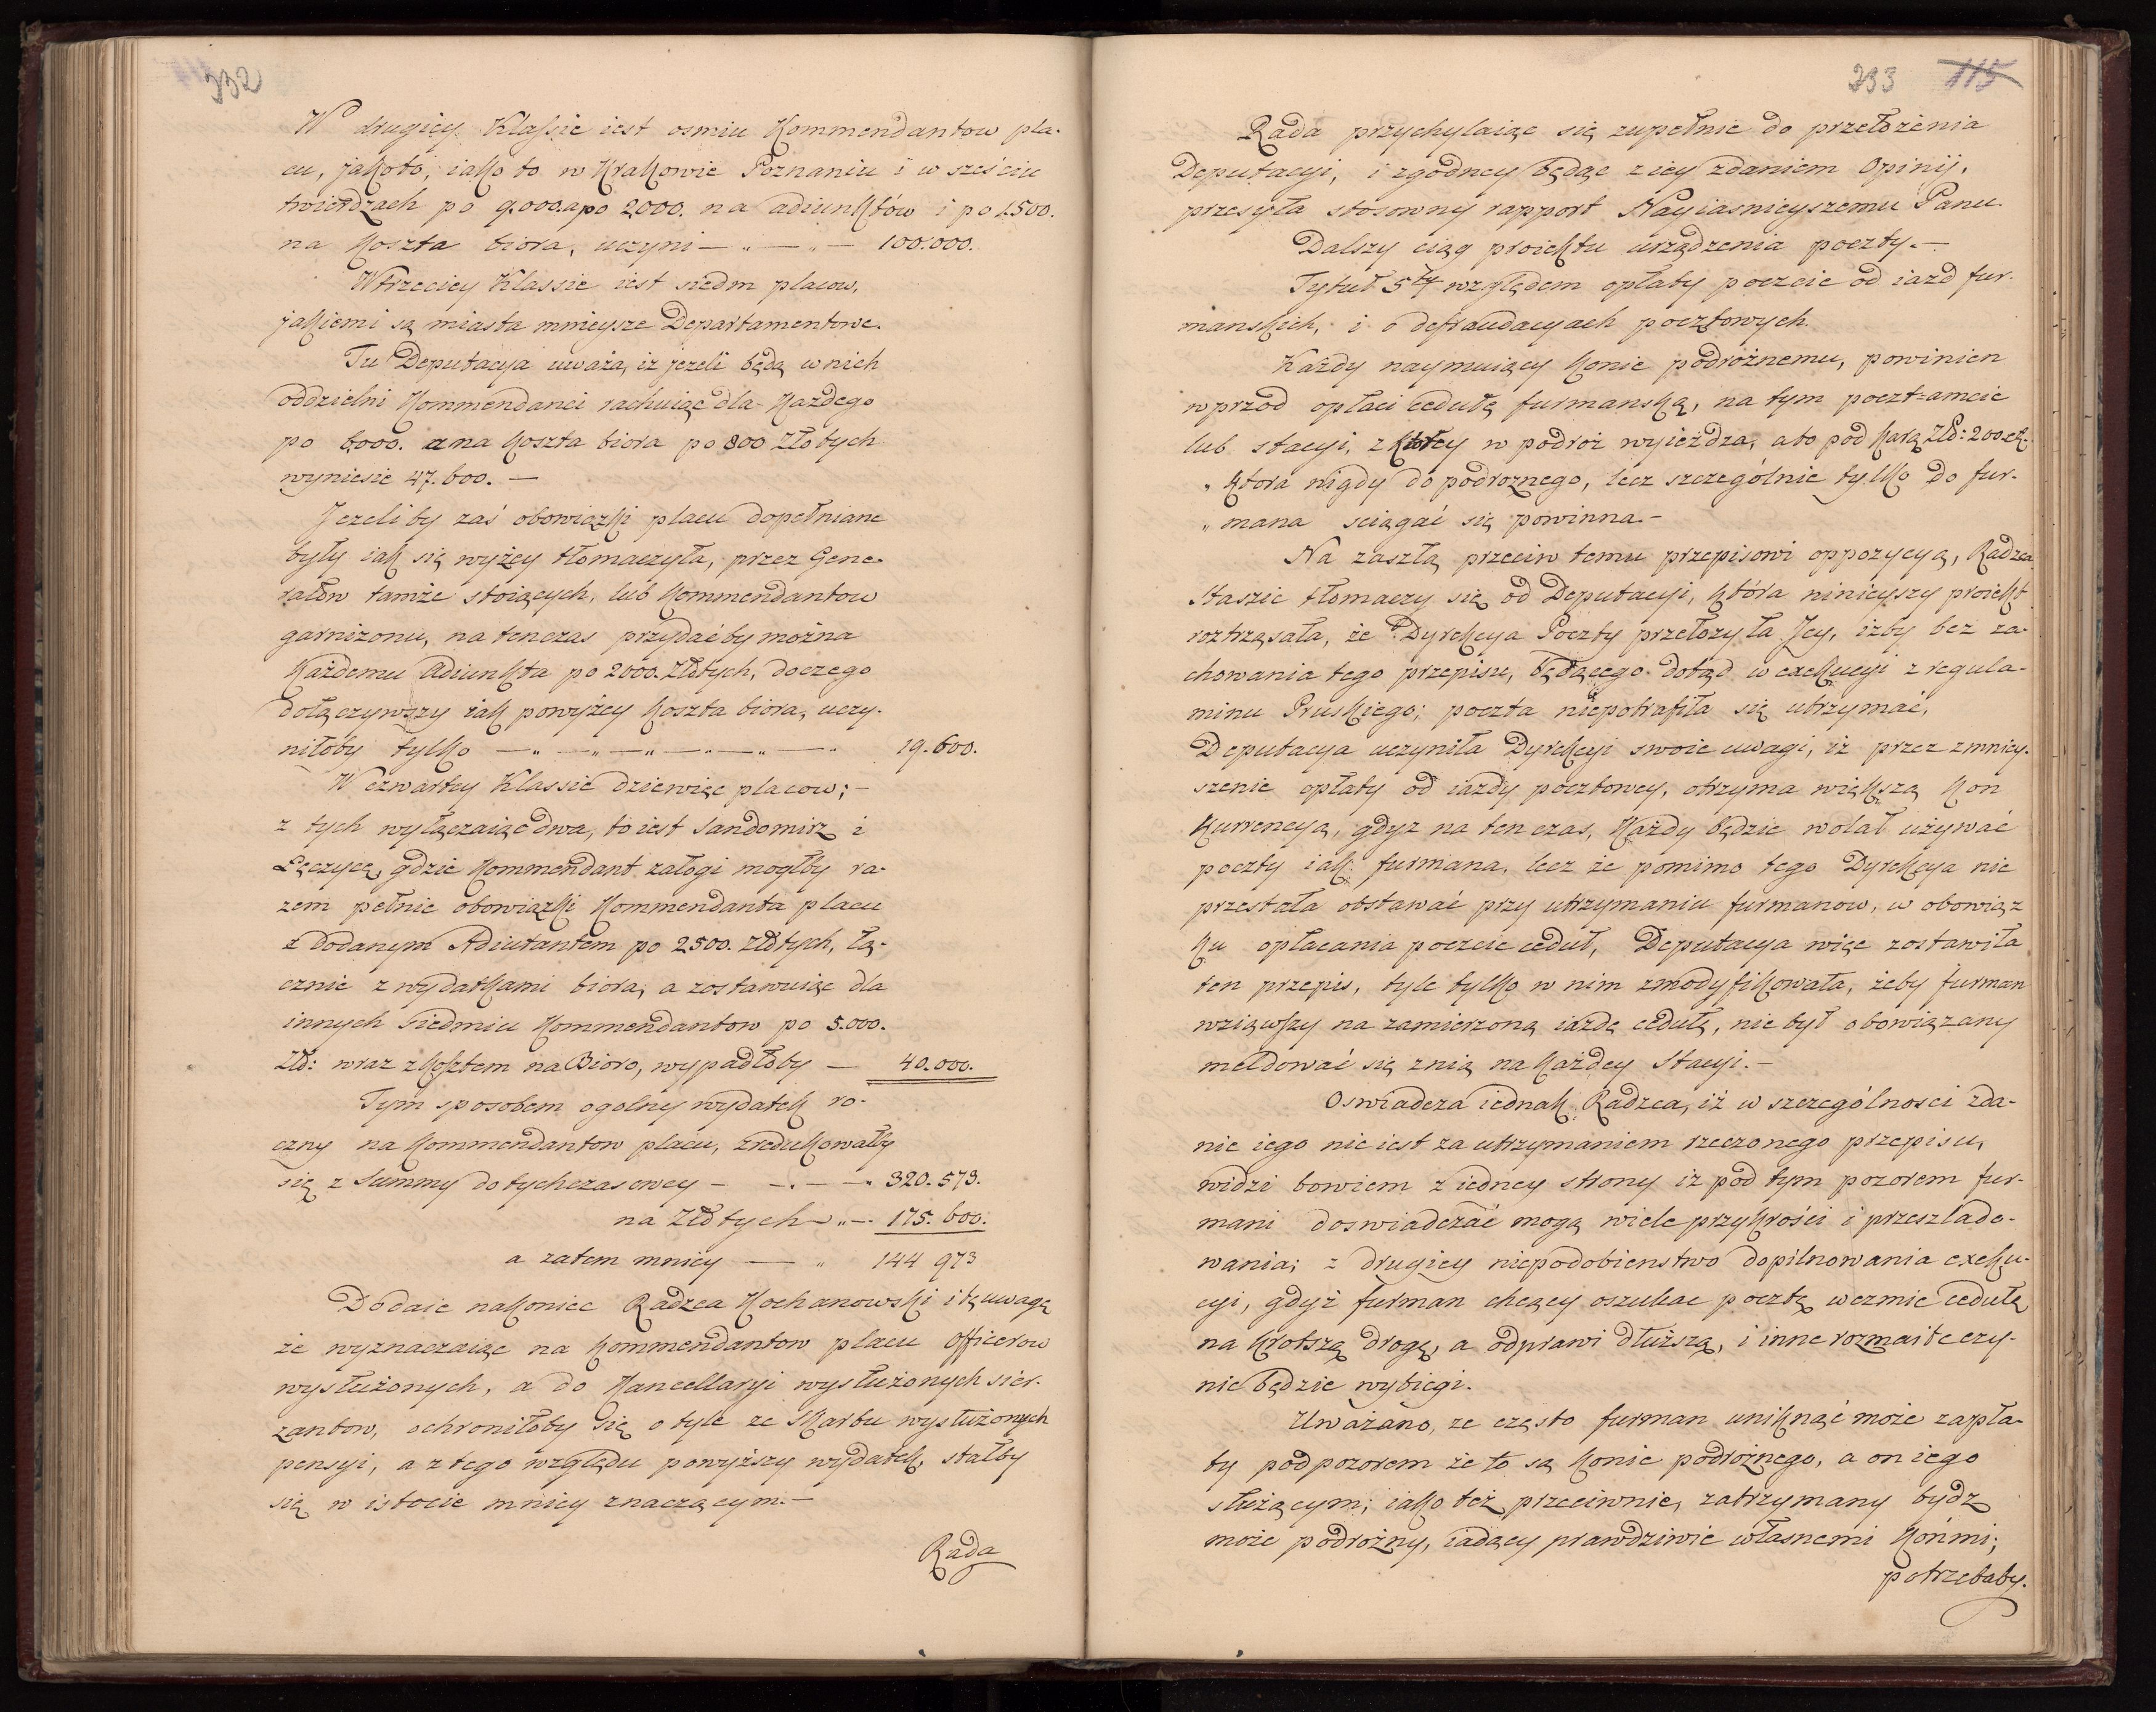 232
W drugiey Klassie iest osmiu Kommendantow pla-
cu, jakoto, iako to w Krakowie Poznaniu i w sześciu
twierdzach po 9.000. a po 2000. na adiunktów i po 1.500.
na koszta biora, uczyni — „ — „ — 100.000.
W trzeciey Klassie iest siedm placow,
jakiemi są miasta mnieysze Departamentowe.
Tu Deputacya uważa, iż jezeli będą w nich
oddzielni Kommendanci rachuiąc dla każdego
po 6000. a na koszta biora po 800 Złotych
wyniesie 47.600. —
Jezeliby zaś obowiązki placu dopełniane
były iak się wyżey tłomaczyła, przez Gene-
rałów tamże stoiących, lub Kommendantow
garnizonu, na tenczas przydać by można
każdemu Adiunkta po 2000. Złtych, do czego
dołączywszy iak powyżey koszta biora, uczy-
niłoby tylko — „ — „ — „ — „ — „ — „ 19.600.
W czwartey Klassie dziewięc placow; —
z tych wyłączaiąc dwa, to iest Sandomirz i
Łęczycę, gdzie Kommendant załogi mogłby ra-
zem pełnic obowiązki Kommendanta placu
z dodanym Adiutantem po 2500. Złtych, łą-
cznie z wydatkami biora, a zostawuiąc dla
innych siedmiu Kommendantow po 5.000.
Zł: wraz z kosztem na Bioro, wypadłoby — 40.000.
Tym sposobem ogolny wydatek ro-
czny na Kommendantow placu, zredukowałby
się z Summy dotychczasowey — — „ — „ 320.573.
na Złtych „ — 175.600.
a zatem mniey — „ 144 973
Dodaie nakoniec Radzca Kochanowski i tę uwagę
że wyznaczaiąc na Kommendantow placu Officerow
wysłużonych, a do Kancellaryi wysłużonych sier-
zantow, ochroniłoby się o tyle ze skarbu wysłużonych
pensyi, a z tego względu powyższy wydatek, stałby
się w istocie mniey znaczącym. —
Rada
233 115
Rada przychylaiąc się zupełnie do przełożenia
Deputacyi, i zgodney będąc z iey zdaniem Opinij,
przesyła stosowny rapport Nayiasnieyszemu Panu.
Dalszy ciąg proiektu urządzenia poczty. —
Tytuł 5ty względem opłaty poczcie od iazd fur-
manskich, i o defraudacyach pocztowych.
Każdy naymuiący konie podróżnemu, powinien
wprzod opłaci cedułę furmanską, na tym poczt=amcie
lub stacyi, z ktorey w podróż wyieżdza, a to pod karą Zł: 200. ct.
„ ktora nigdy do podroznego, lecz szczególnie tylko do fur-
„ mana sciągać się powinna. —
Na zaszłą przeciw temu przepisowi oppozycyą, Radzca
Staszic tłomaczy się od Deputacyi, która ninieyszy proiekt
roztrząsała, że Dyrekcya Poczty przełozyła Jey, iżby bez za-
chowania tego przepisu, będącego dotąd w exekucyi z regula-
minu Pruskiego; poczta niepotrafiła się utrzymać,
Deputacya uczyniła Dyrekcyi swoie uwagi, iż przez zmniey-
szenie opłaty od iazdy pocztowey, otrzyma większą kon
kurrencyą, gdyz na ten czas, każdy będzie wolał używać
poczty iak furmana. lecz że pomimo tego Dyrekcya nie
przestała obstawać przy utrzymaniu furmanow, w obowiąz
ku opłacania poczcie ceduł, Deputacya więc zostawiła
ten przepis, tyle tylko w nim zmodyfikowała, żeby furman
wziąwszy na zamierzoną iazdę cedułę, nie był obowiązany
meldować się z nią na każdey Stacyi. —
Oswiadcza iednak Radzca, iż w szczególnosci zda-
nie iego nie iest za utrzymaniem rzeczonego przepisu,
widzi bowiem z iedney strony iż pod tym pozorem fur-
mani doswiadczać mogą wiele przykrości i przeszlado-
wania; z drugiey niepodobienstwo dopilnowania exeku-
cyi, gdyż furman chcący oszukac pocztę wezmie cedułę
na krotszą drogę, a odprawi dłuższą, i inne rozmaite czy-
nic będzie wybiegi.
Uważano, ze często furman uniknąć może zapła-
ty pod pozorem że to są konie podrożnego, a on iego
służącym; iako też przeciwnie, zatrzymany bydz
może podrożny, iadący prawdziwie własnemi końmi;
potrzebaby.